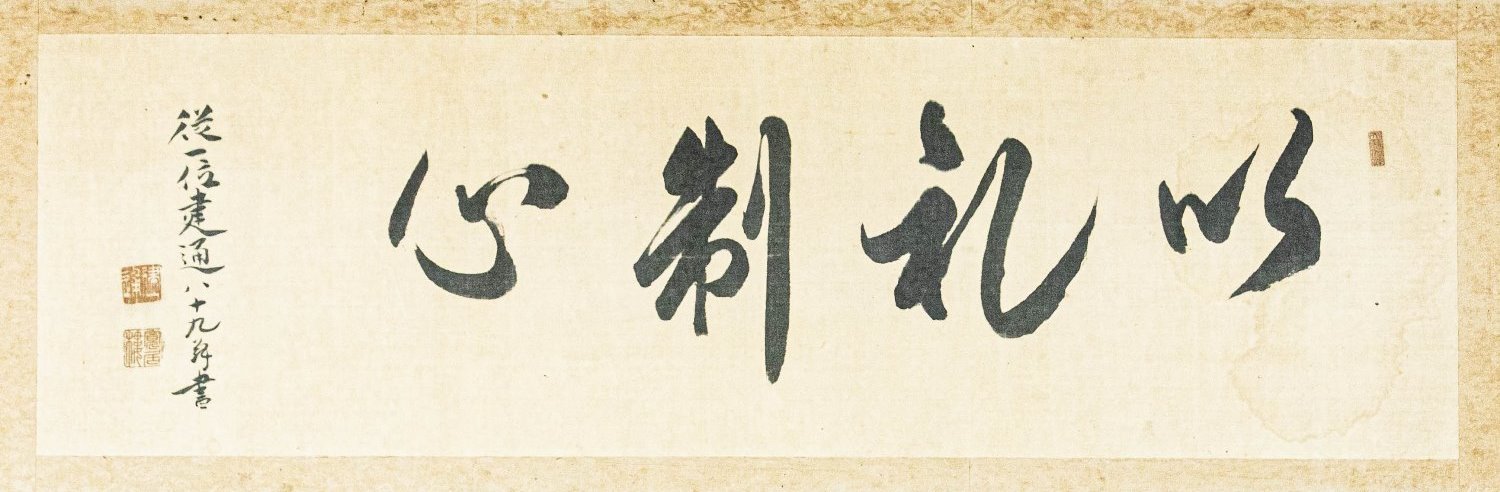 以礼制心
従一位建通八十九翁書